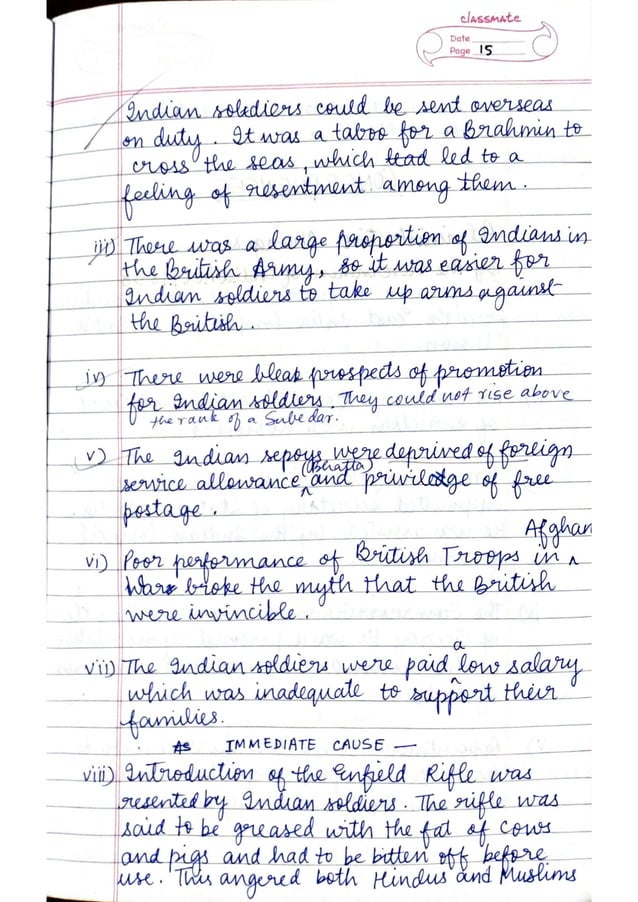 classmate
Date
Page 15
Indian soldiers could be sent overseas
on duty. It was a taboo for a Brahmin to
cross the seas, which lead led to a
feeling of resentment among them.
iii) There was a large proportion of Indians in
the British Army, so it was easier for
Indian soldiers to take up arms against
the British.
iv) There were bleak prospects of promotion
for Indian soldiers. They could not rise above
the rank of a Subedar.
v) The Indian sepoys were deprived of foreign
service allowance (Bhatta) and priviledge of free
postage.
vi) Poor performance of British Troops in Afghan
War broke the myth that the British
were invincible.
vii) The Indian soldiers were paid a low salary
which was inadequate to support their
families.
IMMEDIATE CAUSE —
viii) Introduction of the Enfield Rifle was
resented by Indian soldiers. The rifle was
said to be greased with the fat of cows
and pigs and had to be bitten off before
use. This angered both Hindus and Muslims